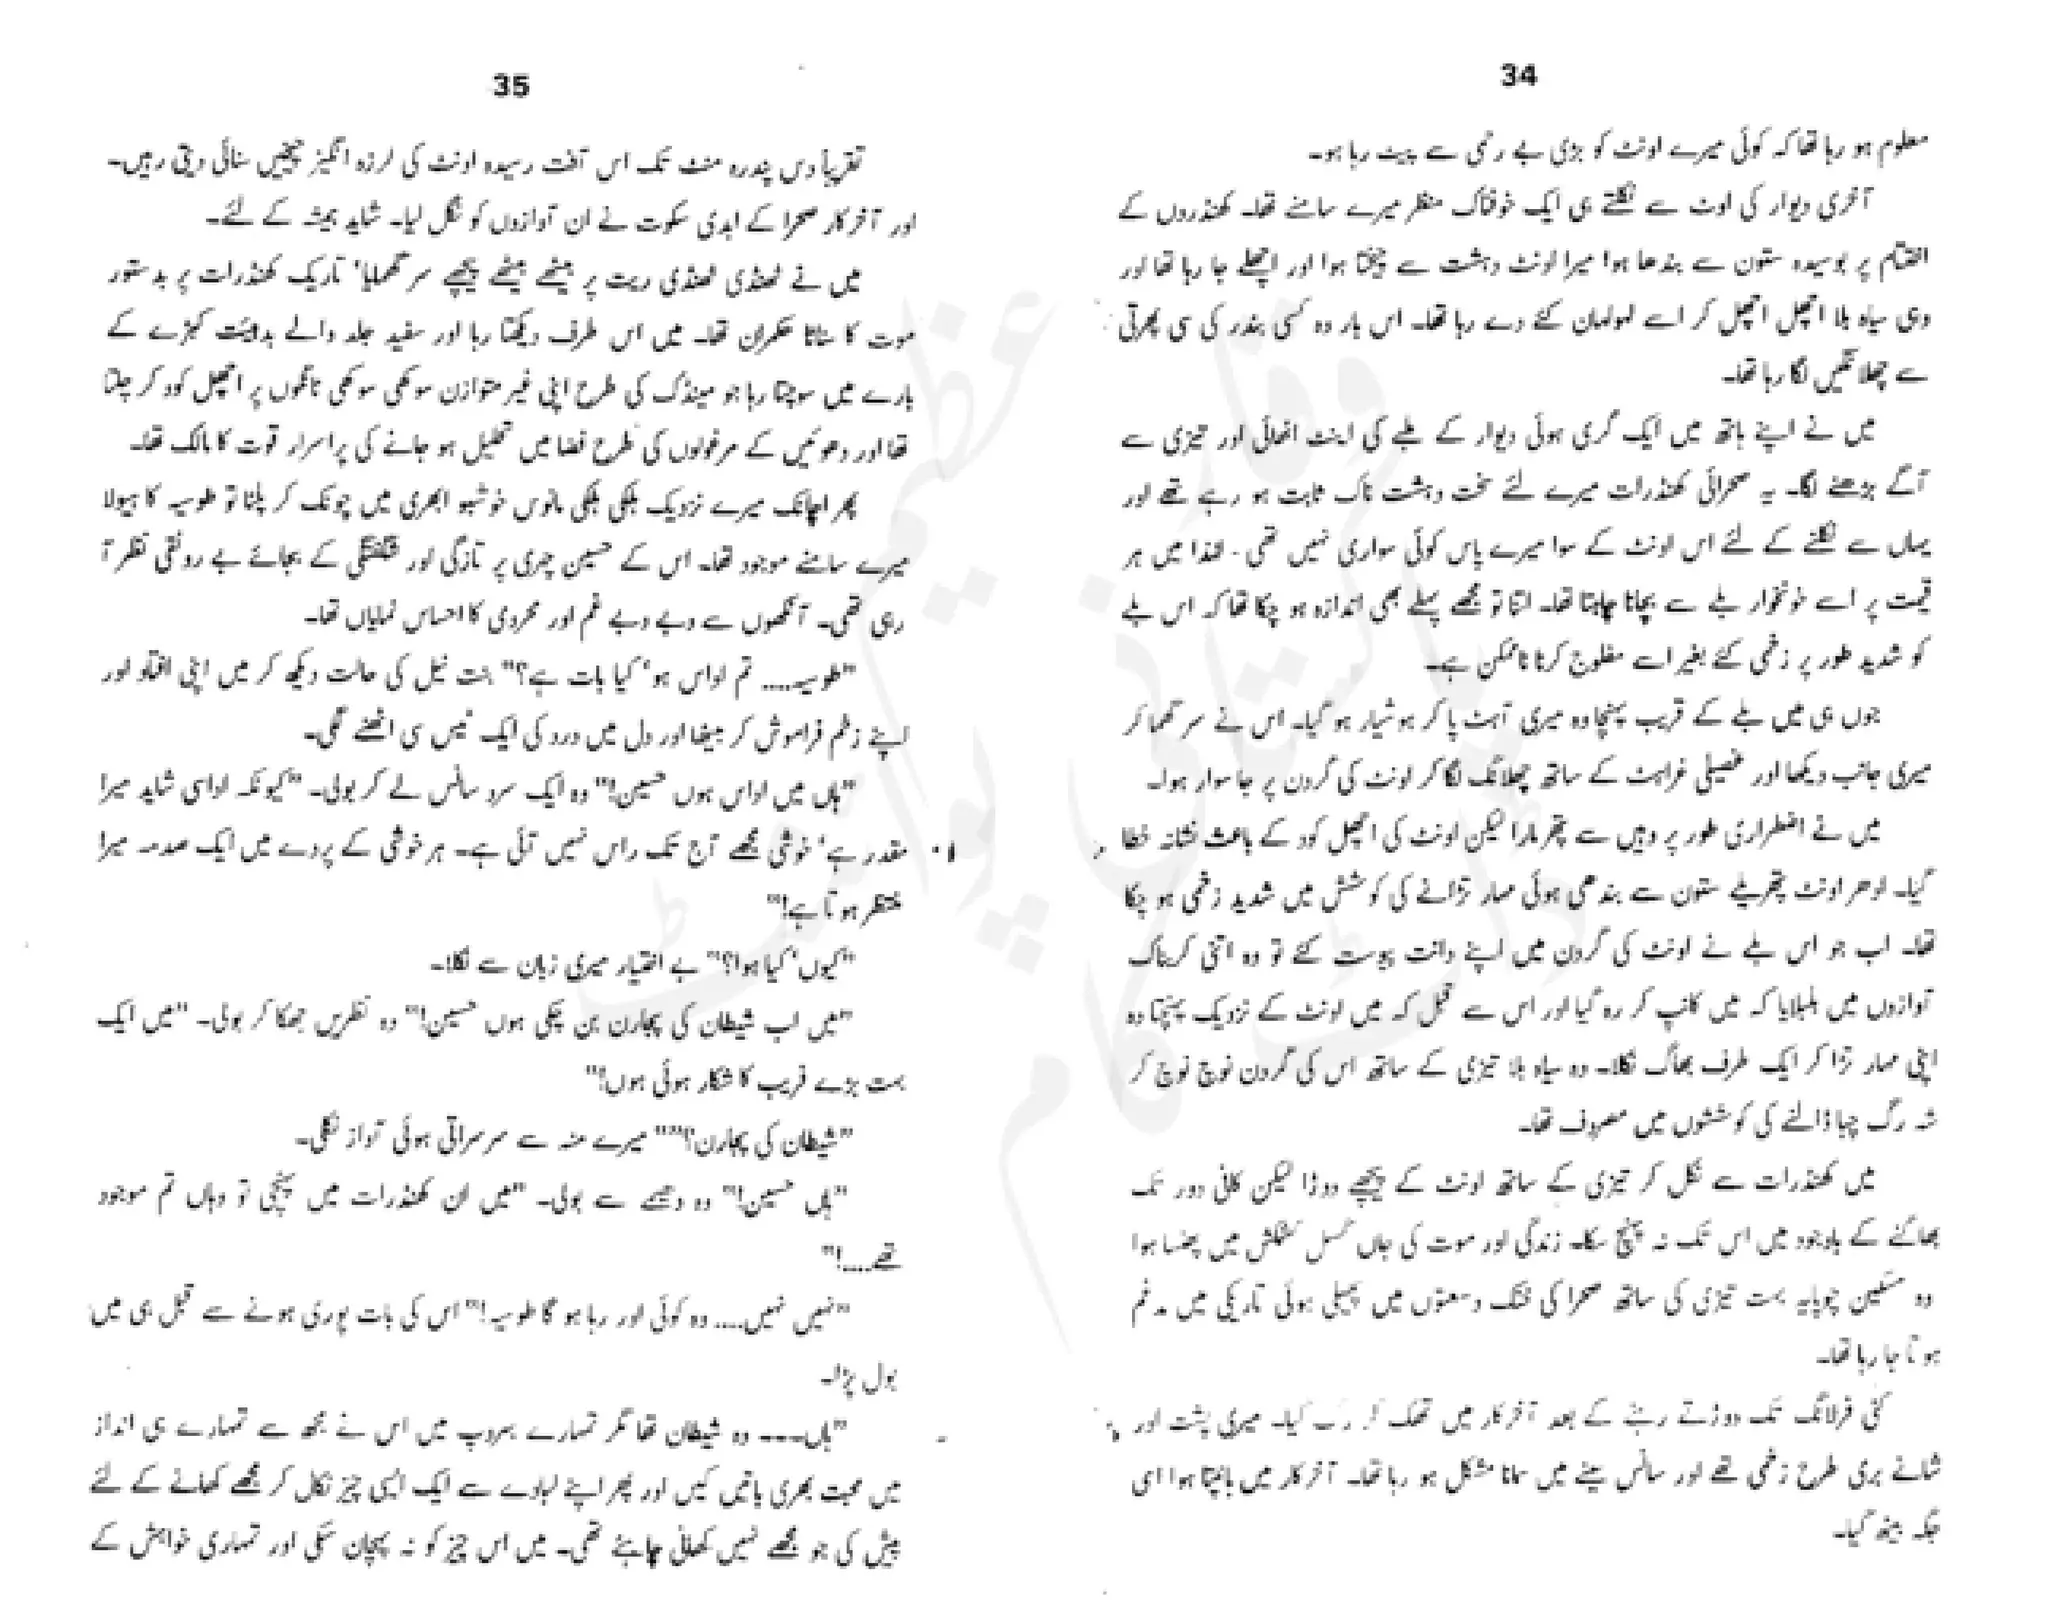 34
معلوم ہو رہا تھا کہ کوئی میرے اونٹ کو بڑی بے رحمی سے پیٹ رہا ہو۔
آخری دیوار کی اوٹ سے نکلتے ہی ایک خوفناک منظر میرے سامنے تھا۔ کھنڈروں کے
اختتام پر بوسیدہ ستون سے بندھا ہوا میرا اونٹ دہشت سے چیختا ہوا اور اچھلے جا رہا تھا اور
وہی سیاہ بلا اچھل اچھل کر اسے لہولہان کئے دے رہا تھا۔ اس بار وہ کسی بندر کی سی پھرتی
سے چھلانگیں لگا رہا تھا۔
میں نے اپنے ہاتھ میں ایک گری ہوئی دیوار کے ملبے کی اینٹ اٹھائی اور تیزی سے
آگے بڑھنے لگا۔ یہ صحرائی کھنڈرات میرے لئے سخت دہشت ناک ثابت ہو رہے تھے اور
یہاں سے نکلنے کے لئے اس اونٹ کے سوا میرے پاس کوئی سواری نہیں تھی۔ لہٰذا میں ہر
قیمت پر اسے خونخوار بلے سے بچانا چاہتا تھا۔ اتنا تو مجھے پہلے بھی اندازہ ہو چکا تھا کہ اس بلے
کو شدید طور پر زخمی کئے بغیر اسے مفلوج کرنا ناممکن ہے۔
جوں ہی میں بلے کے قریب پہنچا وہ میری آہٹ پا کر ہوشیار ہو گیا۔ اس نے سر گھما کر
میری جانب دیکھا اور غصیلی غراہٹ کے ساتھ چھلانگ لگا کر اونٹ کی گردن پر جا سوار ہوا۔
میں نے اضطراری طور پر وہیں سے پتھر مارا لیکن اونٹ کی اچھل کود کے باعث نشانہ خطا
گیا۔ ادھر اونٹ پتھریلے ستون سے بندھی ہوئی مہار تڑانے کی کوشش میں شدید زخمی ہو چکا
تھا۔ اب جو اس بلے نے اونٹ کی گردن میں اپنے دانت پیوست کئے تو وہ اتنی کربناک
آوازوں میں بلبلایا کہ میں کانپ کر رہ گیا اور اس سے قبل کہ میں اونٹ کے نزدیک پہنچتا وہ
اپنی مہار تڑا کر ایک طرف بھاگ نکلا۔ وہ سیاہ بلا تیزی کے ساتھ اس کی گردن نوچ نوچ کر
شہ رگ چبا ڈالنے کی کوششوں میں مصروف تھا۔
میں کھنڈرات سے نکل کر تیزی کے ساتھ اونٹ کے پیچھے دوڑا لیکن کافی دور تک
بھاگنے کے باوجود میں اس تک نہ پہنچ سکا۔ زندگی اور موت کی جاں گسل کشمکش میں پھنسا ہوا
وہ مسکین چوپایہ بہت تیزی کی ساتھ صحرا کی خنک وسعتوں میں پھیلی ہوئی تاریکی میں مدغم
ہوتا جا رہا تھا۔
کئی فرلانگ تک دوڑتے رہنے کے بعد آخرکار میں تھک کر رک گیا۔ میری پشت اور
شانے بری طرح زخمی تھے اور سانس سینے میں سمانا مشکل ہو رہا تھا۔ آخرکار میں ہانپتا ہوا اسی
جگہ بیٹھ گیا۔
35
تقریباً دس پندرہ منٹ تک اس آفت رسیدہ اونٹ کی لرزہ انگیز چیخیں سنائی دیتی رہیں۔
اور آخرکار صحرا کے ابدی سکوت نے ان آوازوں کو نگل لیا۔ شاید ہمیشہ کے لئے۔
میں نے ٹھنڈی ٹھنڈی ریت پر بیٹھے بیٹھے پیچھے سر گھمایا' تاریک کھنڈرات پر بدستور
موت کا سناٹا حکمران تھا۔ میں اس طرف دیکھتا رہا اور سفید جلد والے بدہیئت کبڑے کے
بارے میں سوچتا رہا جو مینڈک کی طرح اپنی غیر متوازن سوکھی سوکھی ٹانگوں پر اچھل کود کر چلتا
تھا اور دھوئیں کے مرغولوں کی طرح فضا میں تحلیل ہو جانے کی پراسرار قوت کا مالک تھا۔
پھر اچانک میرے نزدیک ہلکی ہلکی مانوس خوشبو ابھری میں چونک کر پلٹا تو طوسیہ کا ہیولا
میرے سامنے موجود تھا۔ اس کے حسین چہری پر تازگی اور شگفتگی کے بجائے بے رونقی نظر آ
رہی تھی۔ آنکھوں سے دبے دبے غم اور محرومی کا احساس نمایاں تھا۔
"طوسیہ.... تم اداس ہو' کیا بات ہے؟" بنت نیل کی حالت دیکھ کر میں اپنی افتاد اور
اپنے زخم فراموش کر بیٹھا اور دل میں درد کی ایک ٹیس سی اٹھنے لگی۔
"ہاں میں اداس ہوں حسین!" وہ ایک سرد سانس لے کر بولی۔ "کیونکہ اداسی شاید میرا
مقدر ہے' خوشی مجھے آج تک راس نہیں آئی ہے۔ ہر خوشی کے پردے میں ایک صدمہ میرا
منتظر ہوتا ہے!"
"کیوں' کیا ہوا؟" بے اختیار میری زبان سے نکلا۔
"میں اب شیطان کی پجارن بن چکی ہوں حسین!" وہ نظریں جھکا کر بولی۔ "میں ایک
بہت بڑے فریب کا شکار ہوئی ہوں!"
"شیطان کی پجارن؟" میرے منہ سے سرسراتی ہوئی آواز نکلی۔
"ہاں حسین!" وہ دھیمے سے بولی۔ "میں ان کھنڈرات میں پہنچی تو وہاں تم موجود
تھے....!"
"نہیں نہیں.... وہ کوئی اور رہا ہو گا طوسیہ!" اس کی بات پوری ہونے سے قبل ہی میں
بول پڑا۔
"ہاں۔۔۔ وہ شیطان تھا مگر تمہارے بہروپ میں اس نے مجھ سے تمہارے ہی انداز
میں محبت بھری باتیں کیں اور پھر اپنے لبادے سے ایک ایسی چیز نکال کر مجھے کھانے کے لئے
پیش کی جو مجھے نہیں کھانی چاہئے تھی۔ میں اس چیز کو نہ پہچان سکی اور تمہاری خواہش کے